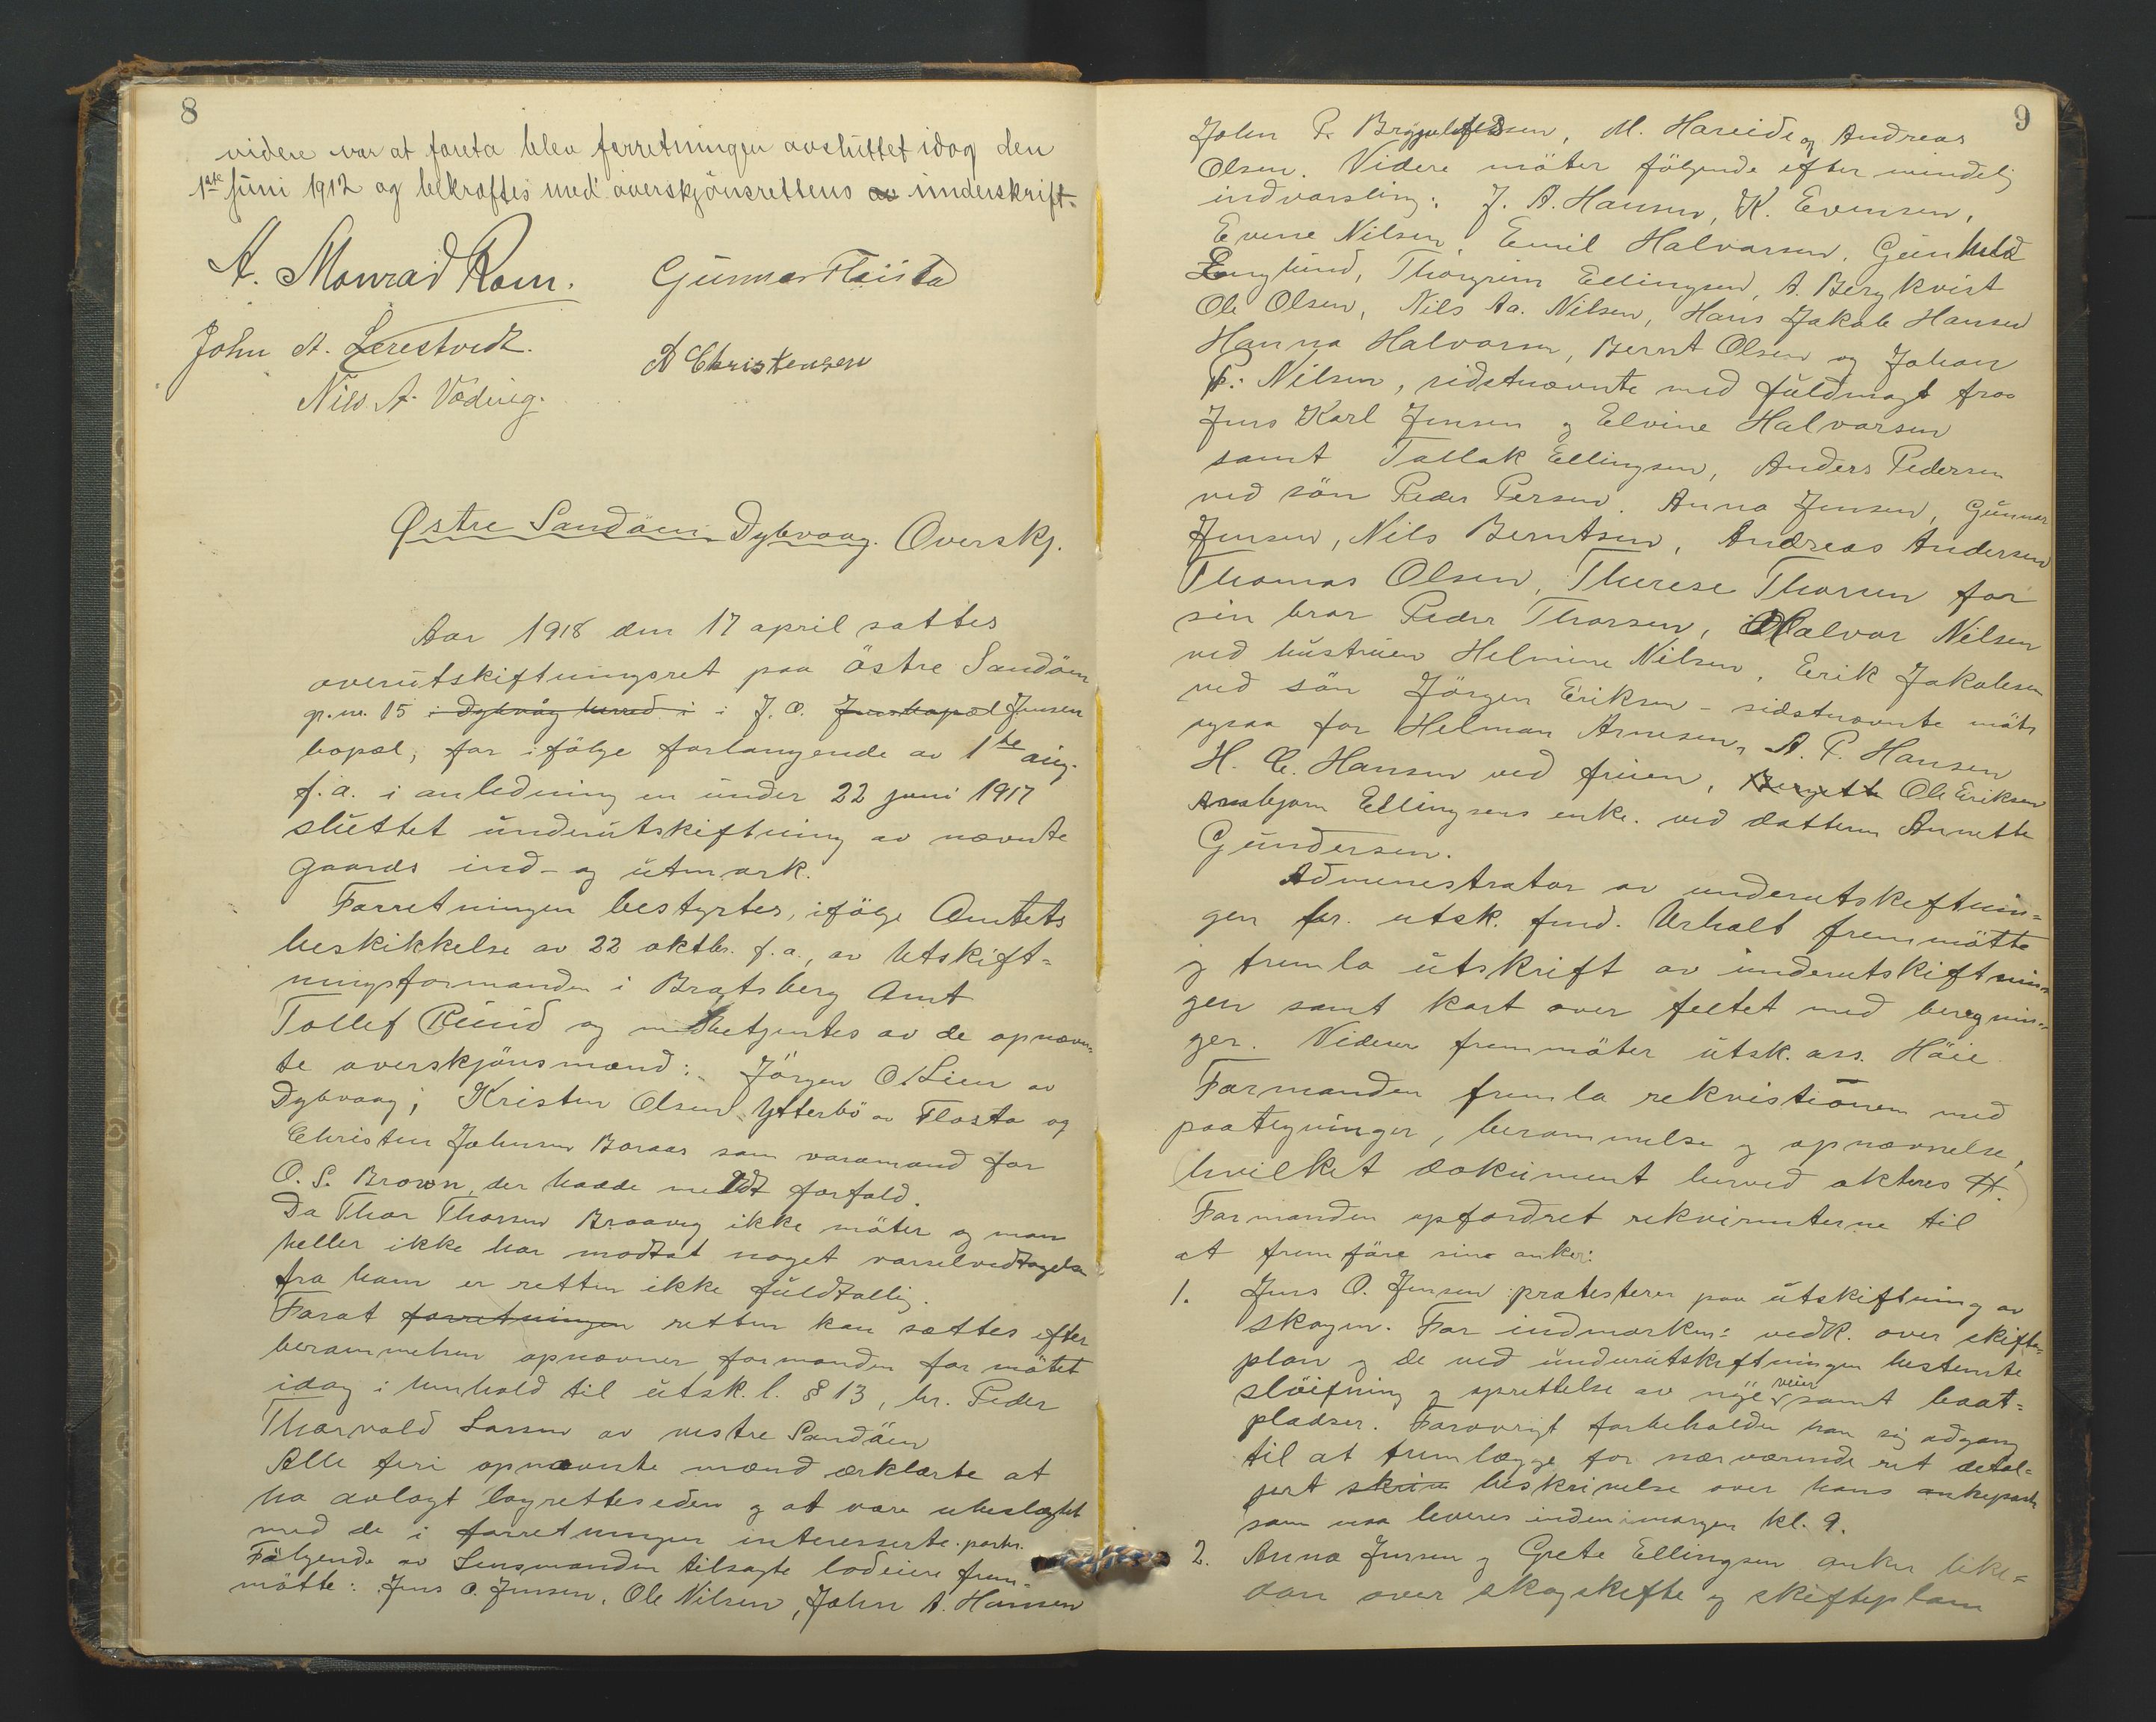 8
videre var at foreta blev forretningen avsluttet idag den
1ste juni 1912 og bekræftes med overskjönsrettens av underskrift.
A. Monrad Rom. Gunnar Fløista
John A. Lærestvedt.
D Christensen
Nils A. Vöding.
Østre Sandöen Dybvaag. Overskj.
Aar 1918 den 17 april sattes
overutskiftningsret paa östre Sandöen
gr.nr. 15 i Dybvåg herred i i J. O. Jensbopæl Jensen
bopæl, for ifölge forlangende av 1ste aug.
f.a. i anledning en under 22 juni 1917
sluttet underutskiftning av nævnte
gaards ind- og utmark.
Forretningen bestyrtes, ifölge Amtets
beskikkelse av 22 oktbr. f.a., av Utskift=
ningsformanden i Bratsberg Amt
Tollef Ruud og medbetjentes av de opnævn=
te overskjönsmænd: Jörgen O. Lien av
Dybvaag; Kristen Olsen Ytterbö av Flosta og
Christen Johnsen Boraas som varamand for
O. S. Brown, der hadde meldt forfald.
Da Thor Thorsen Braavig ikke möter og man
heller ikke har modtat noget varselvedtagelse
fra ham er retten ikke fuldtallig.
Forat forretningen retten kan sættes efter
berammelsen opnævner formanden for mötet
idag i henhold til utsk.l. § 13, hr. Peder
Thorvald Larsen av vestre Sandöen
Alle feri opnævnte mænd erklærte at
ha avlagt lagretteseden og at være ubeslægtet
med de i forretningen interesserte parter.
Fölgende av Lensmanden tilsagte lodeiere frem=
mötte: Jens O. Jensen, Ole Nilsen, John A. Hansen
9
John P. Brynjulfsen, M. Hareide og Andreas
Olsen. Videre möter fölgende efter mindelig
indvarsling: J. A. Hansen, K. Evensen,
Evene Nilsen, Emil Halvorsen, Gunhild
Englund, Thorgrim Ellingsen, A. Bergkvist
Ole Olsen, Nils Aa. Nilsen, Hans Jakob Hansen
Hanna Halvorsen, Bernt Olsen og Johan
P. Nilsen, sidstnævnte med fuldmagt fra
Jens Karl Jensen og Elvine Halvorsen
samt Tallak Ellingsen, Anders Pedersen
ved sön Peder Persen. Anna Jensen, Gunnar
Jensen, Nils Berntsen, Andreas Andersen
Thomas Olsen, Therese Thorsen for
sin bror Peder Thorsen, Halvor Nilsen
ved hustruen Helmine Nilsen, Erik Jakobsen
ved sön Jörgen Eriksen - sidstnævnte möter
ogsaa for Helman Arnesen, A. P. Hansen
H. C. Hansen ved fruen, Bergette Ole Eriksen
Ansbjorn Ellingsens enke. ved datteren Annette
Gundersen.
Administrator av underutskiftnin=
gen hr. utsk. fmd. Urholt fremmötte
og fremla utskrift av underutskiftnin=
gen samt kart over feltet med beregnin=
ger. Videre fremmöter utsk. ass. Höie
Formanden fremla rekvistionen med
paategninger, berammelse og opnævnelse,
hvilket dokument herved akteres H.
Formanden opfordret rekvirenterne til
at fremföre sine anker:
1. Jens O. Jensen protesterer paa utskiftning av
skogen. For indmarkens vedk. over skifte=
plan og de ved underutskiftningen bestemte
slöifning og oprettelse av nye veier samt baat=
pladser. Forøvrigt forbeholder han sig adgang
til at fremlægge for nærværende ret detal=
jert skriv beskrivelse over hans ankeposter
som maa leveres inden imorgen kl. 9.
2. Anna Jensen og Grete Ellingsen anker like=
dan over skogskifte og skifteplan